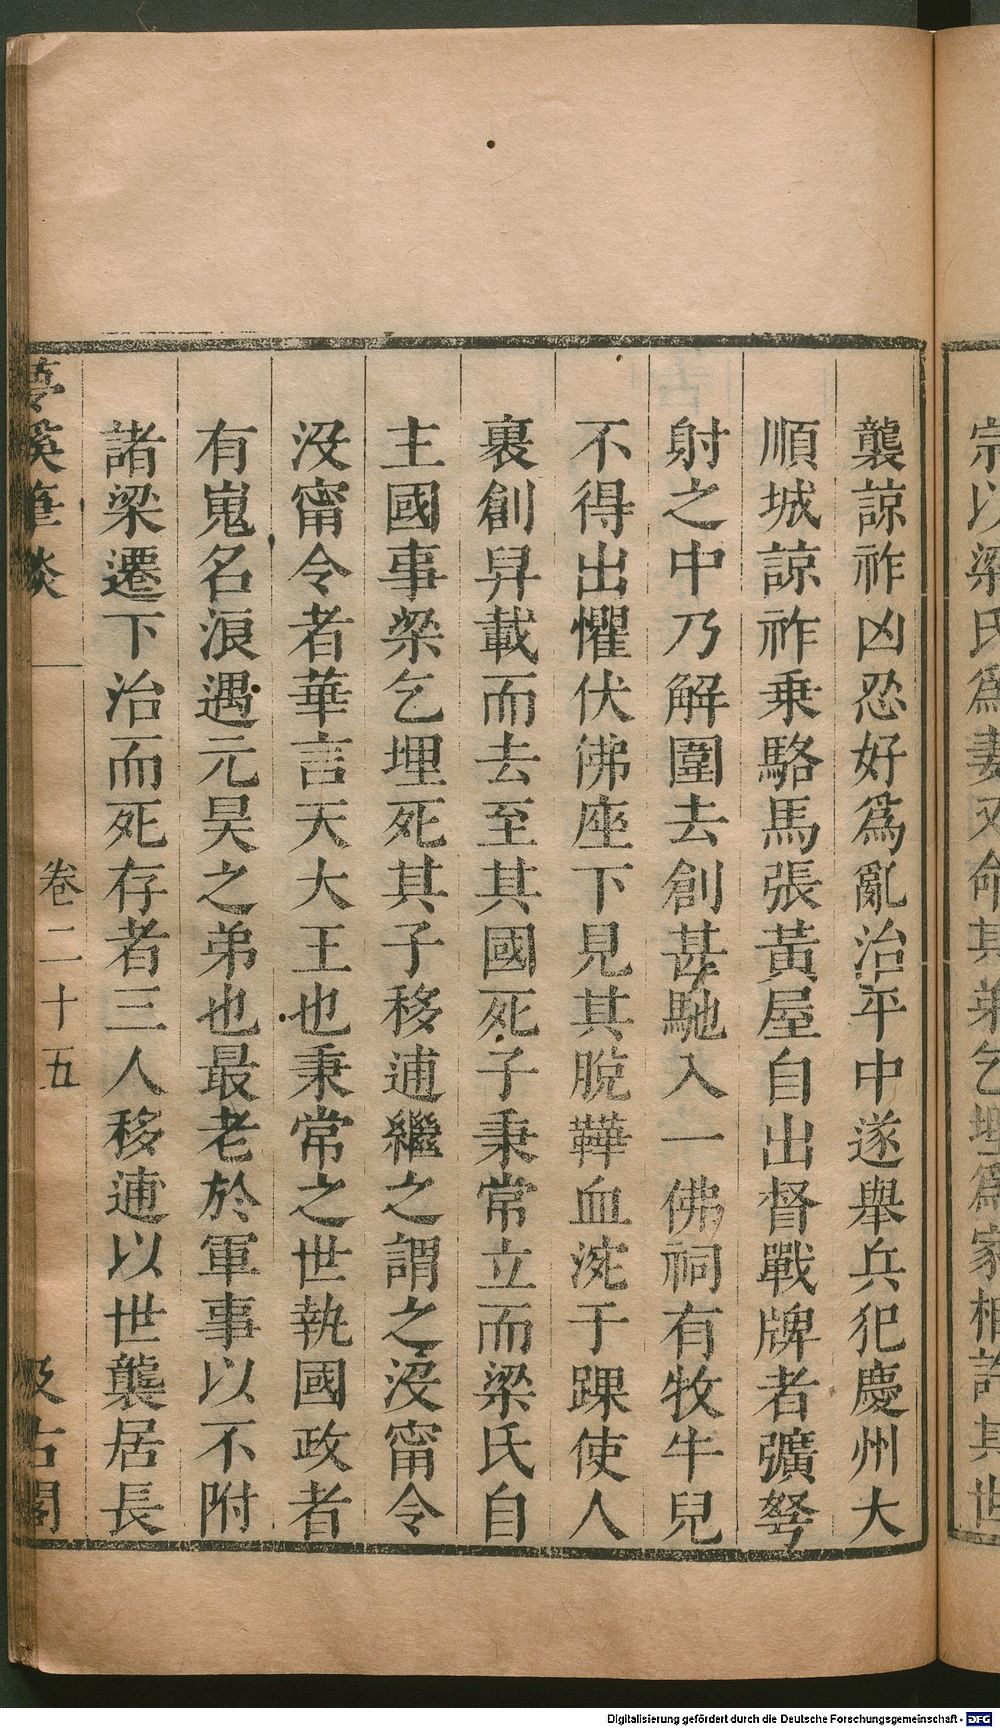 宗以梁氏為妻又命其弟乞埋為家相許其世
襲諒祚凶忍好為亂治平中遂舉兵犯慶州大
順城諒祚乗駱馬張黃屋自出督戰牌者彍弩
射之中乃解圍去創甚馳入一佛祠有牧牛兒
不得出懼伏佛座下見其脫鞾血涴于踝使人
裹創舁載而去至其國死子秉常立而梁氏自
主國事梁乞埋死其子移逋繼之謂之沒甯令
沒甯令者華言天大王也秉常之世執國政者
有嵬名浪遇元昊之弟也最老於軍事以不附
諸梁遷下治而死存者三人移逋以世襲居長
夢溪筆談 卷二十五 汲古閣
Digitalisierung gefördert durch die Deutsche Forschungsgemeinschaft - DFG